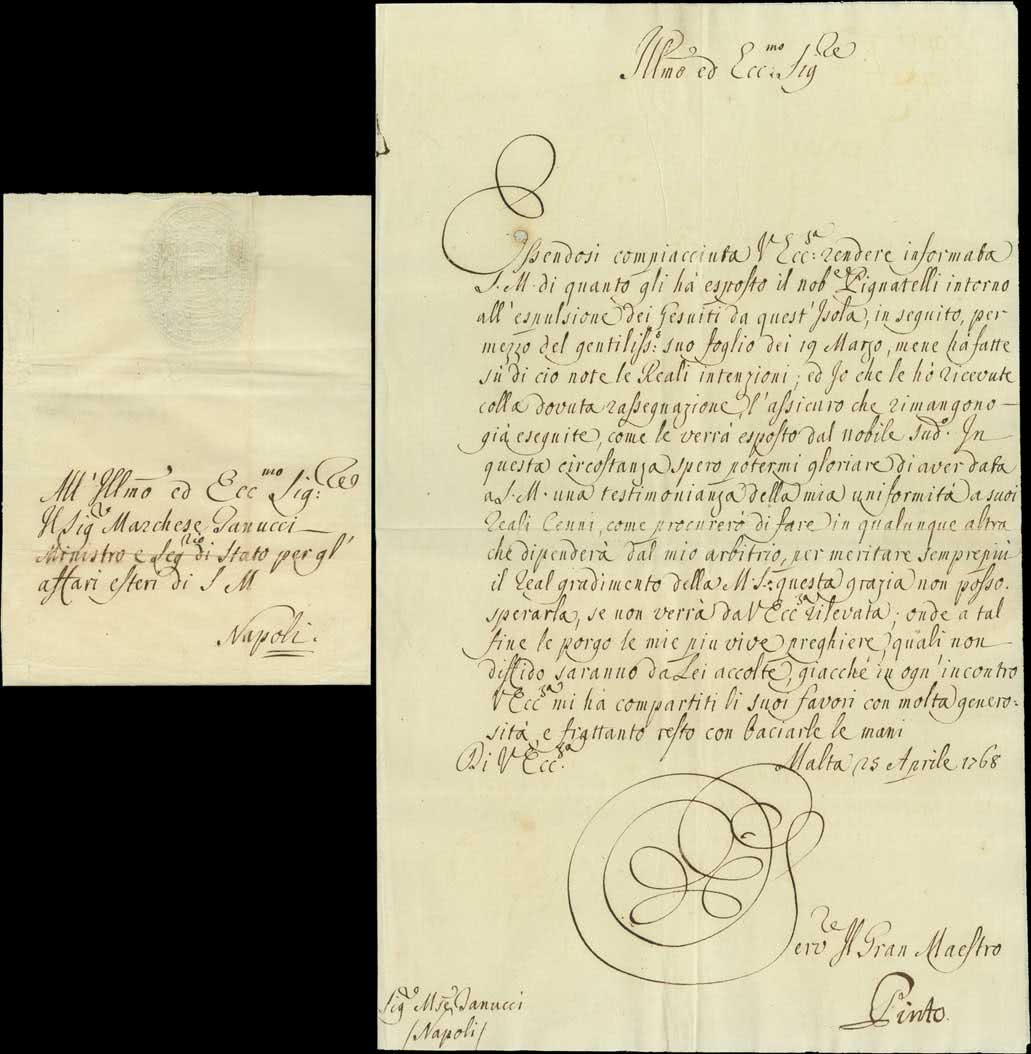 All' Illmo ed Ecc:mo Sig:re
Il Sig:re Marchese Tanucci
Ministro e Seg:rio di Stato per gl'
affari esteri di S M
Napoli.
Illmo ed Ecc:mo Sig:re
Essendosi compiacciuta V Ecc:za rendere informata
S. M. di quanto gli há esposto il nob:e Pignatelli intorno
all' espulsione dei Gesuiti da quest' Isola, in seguito, per
mezzo del gentiliss:o suo foglio dei 19 Marzo, mene há fatte
sú di cio note le Reali intenzioni; ed Io che le hó ricevute
colla dovuta rassegnazione, l'assicuro che rimangono
giá eseguite, come le verrá esposto dal nobile sud:o In
questa circostanza spero potermi gloriare di aver data
a S. M. una testimonianza della mia uniformitá a suoi
Reali Cenni, come procureró di fare in qualunque altra
che dipenderá dal mio arbitrio, per meritare semprepiú
il Real gradimento della M. S.: questa grazia non posso
sperarla, se non verrá da V Ecc:za rilevata; onde a tal
fine le porgo le mie piu vive preghiere, quali non
diffido saranno da Lei accolte, giacché in ogn' incontro
V Ecc:za mi há compartiti li suoi favori con molta genero:
sitá, e frattanto resto con baciarle le mani
Di V Ecc:za
Malta 25 Aprile 1768
Serv:re Il Gran Maestro
Pinto.
Sig:re M:se Tanucci
/Napoli/